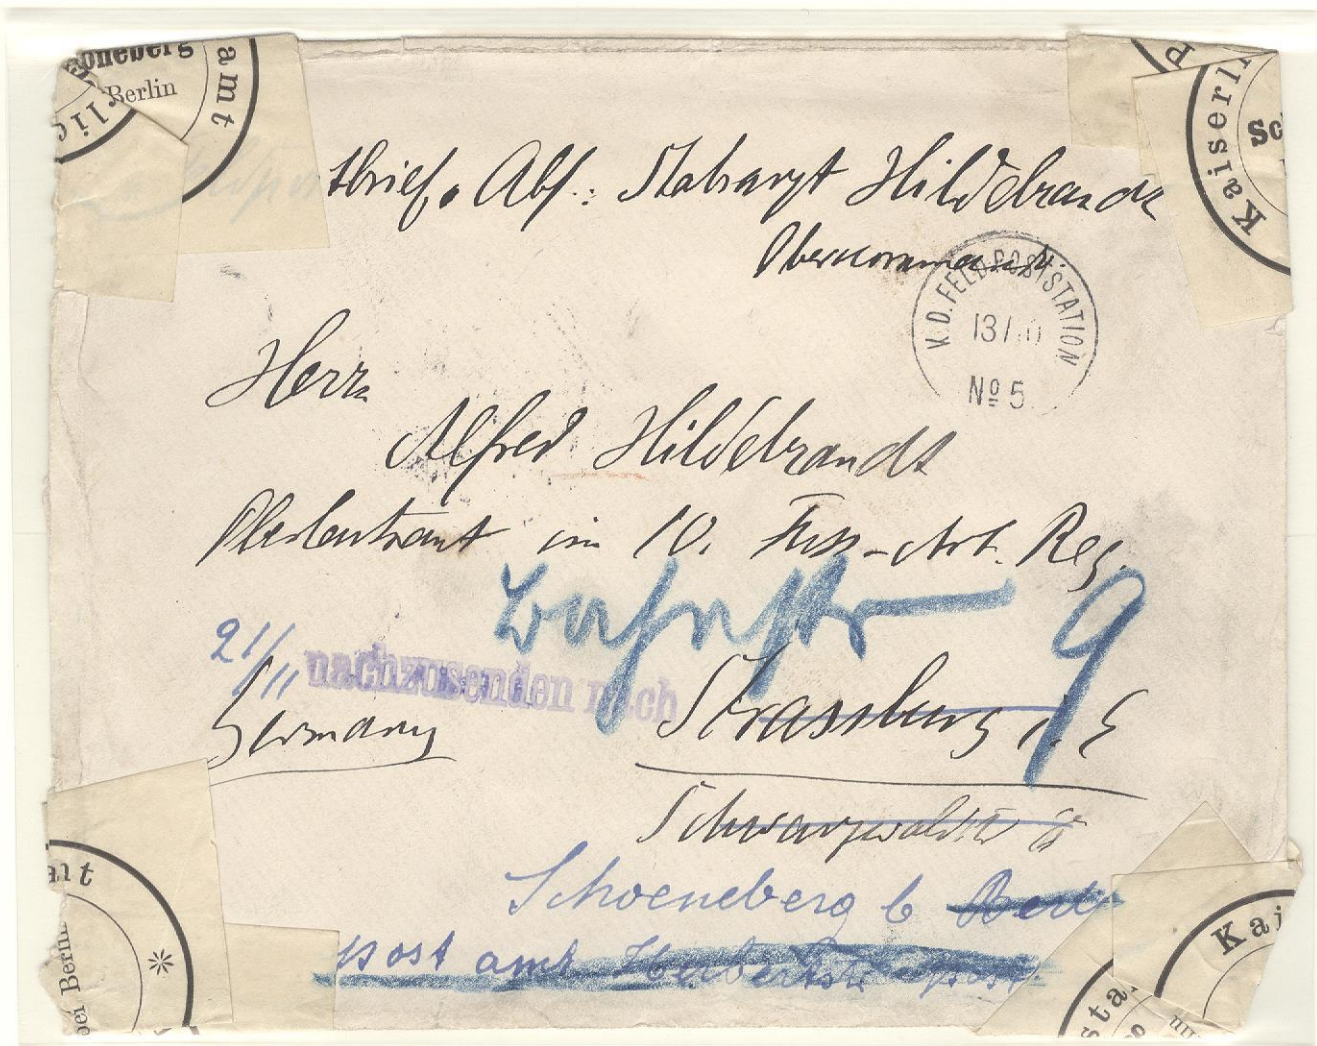 öneberg
Berlin
amt
Kaiserli
Sc
tbrief. Abs.: Stabsarzt Hildebrandt
Oberkommando
K.D. FELDPOSTSTATION
13/10
No 5
Herrn
Alfred Hildebrandt
Oberleutnant im 10. Fuss-Art. Reg.
Bahnstr 9
21/11
nachzusenden nach
Strassburg i. E
Germany
Schwarzwaldstr
Schoeneberg b Berlin
post amt
amt
bei Berlin
*
Kai
sta